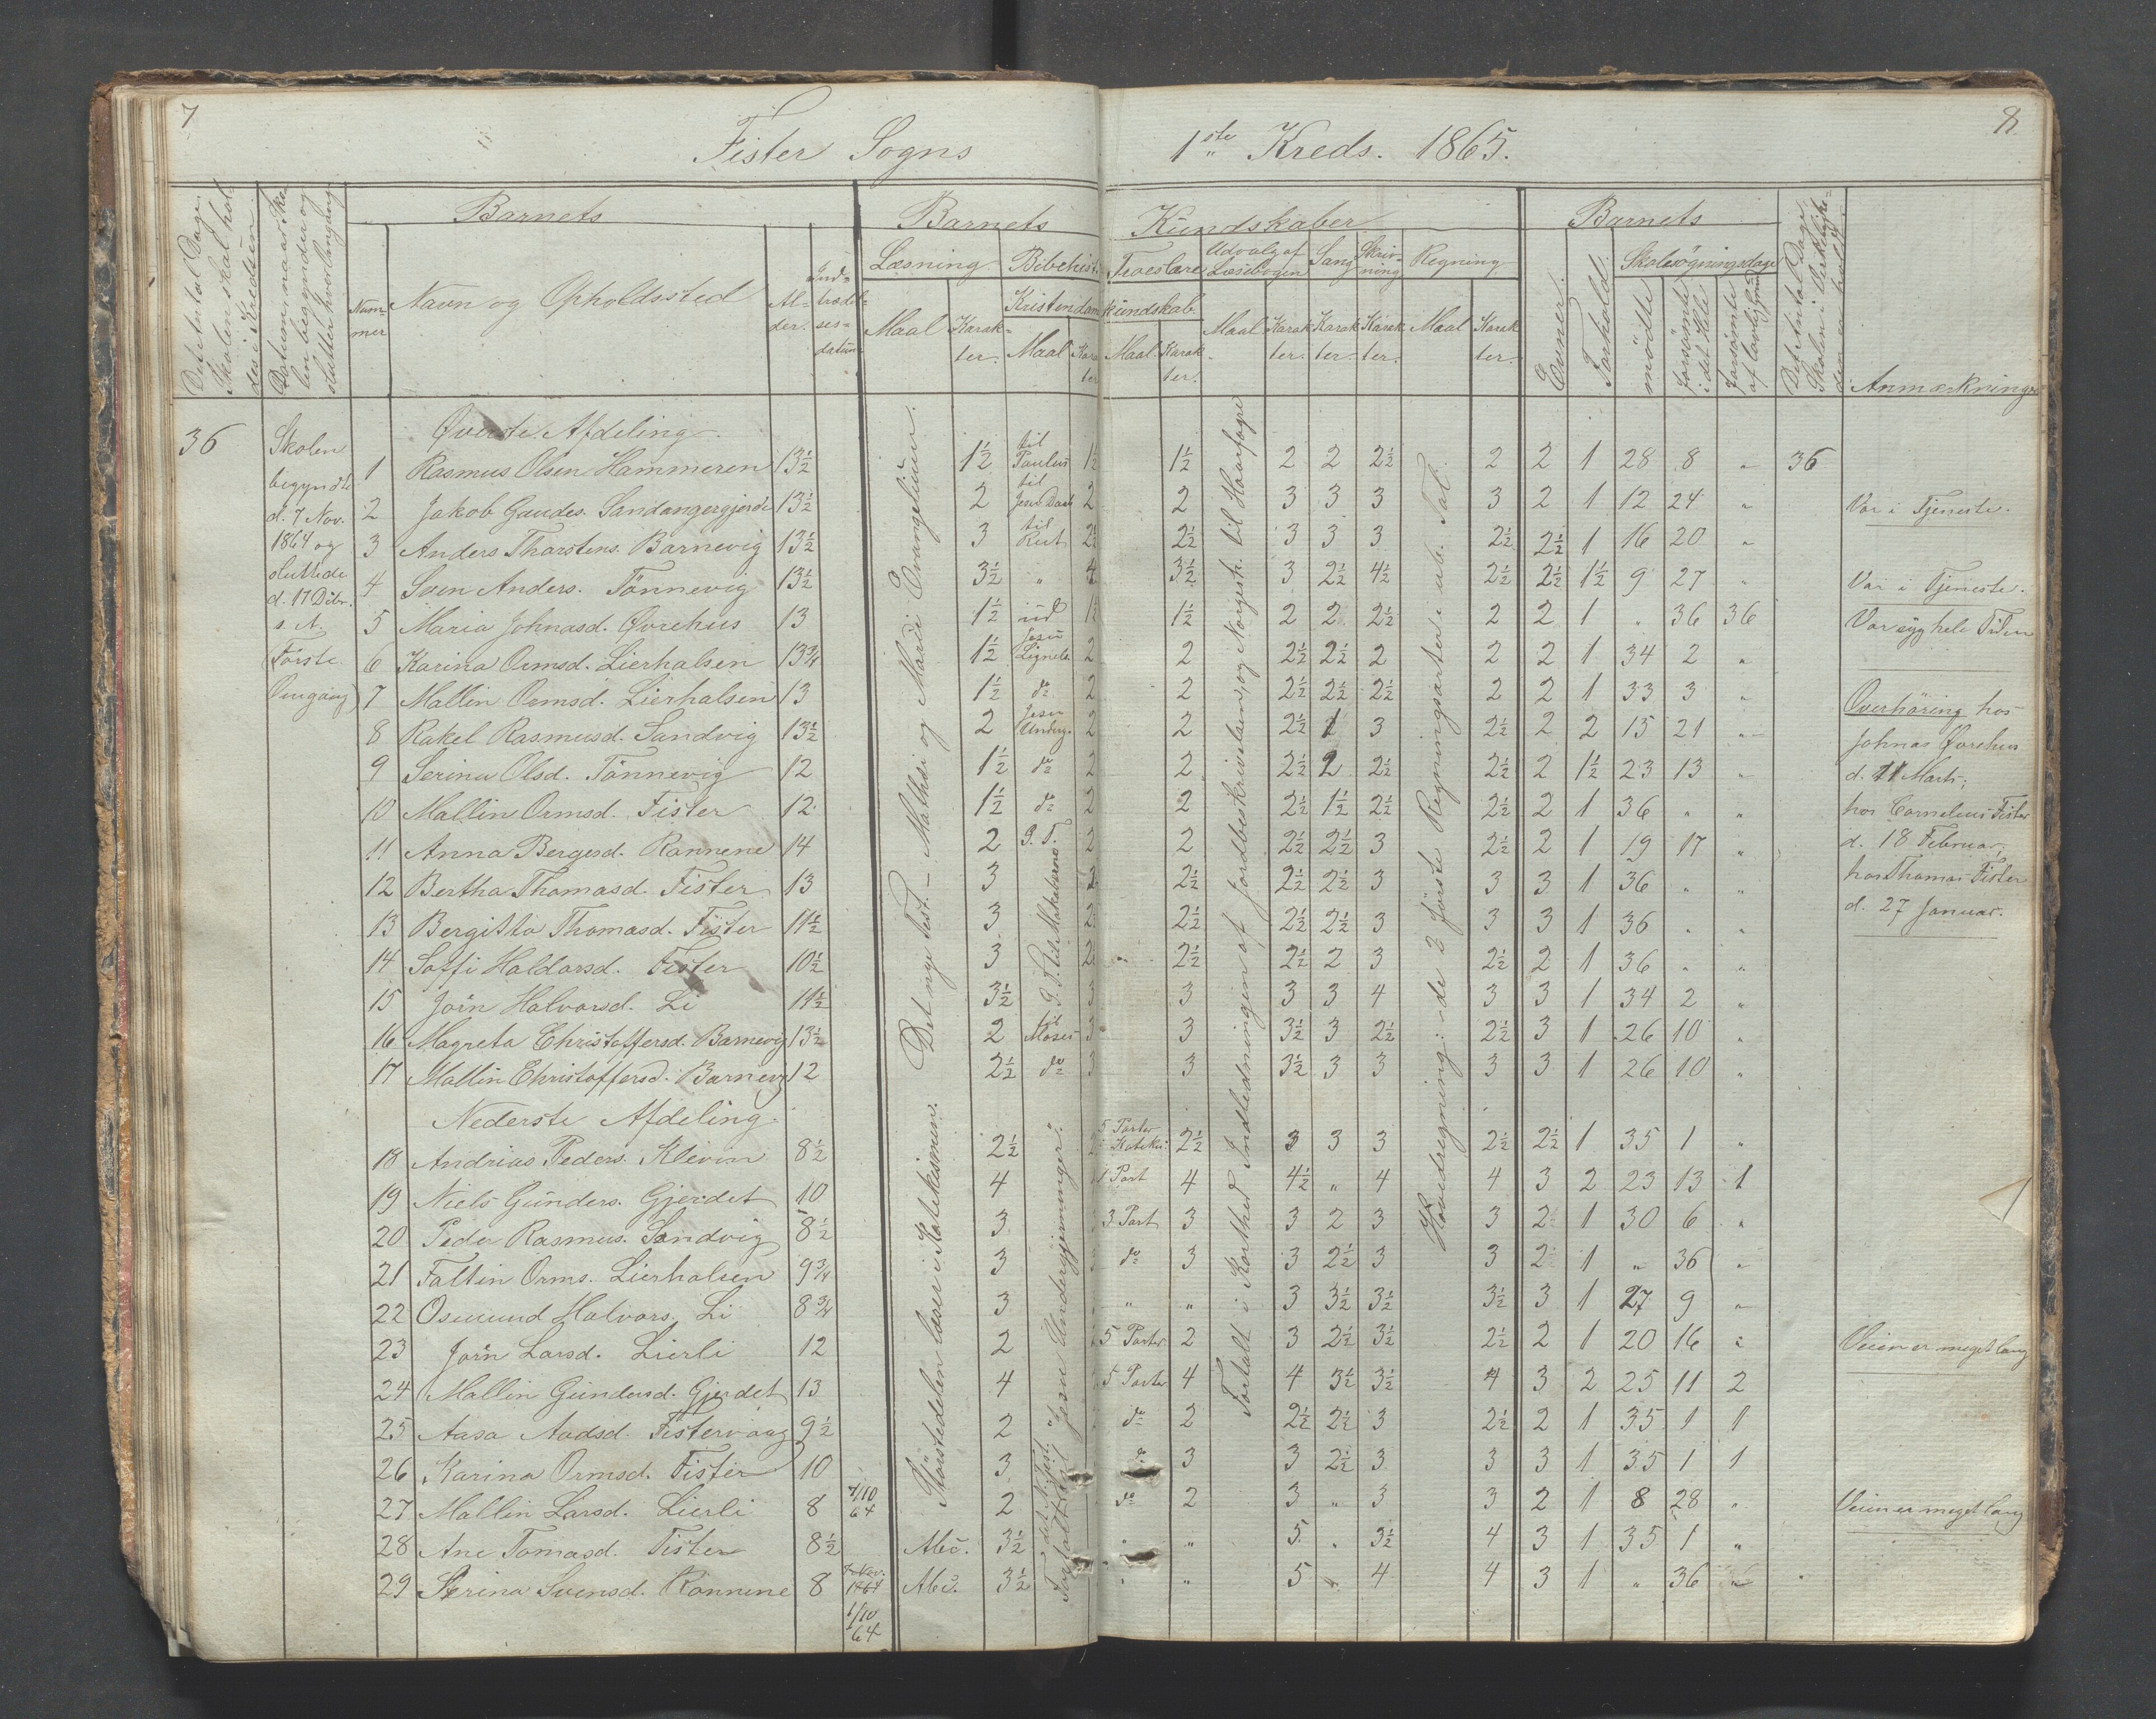 7
8.
Fister Sogns 1ste Kreds. 1865.
Det Antal Dage Skolen skal holdes i Kredsen.
Datum naar Skolen begynder og slutter hver Omgang.
Barnets
Nummer
Navn og Opholdssted
Alder.
Indtrædelsesdatum
Barnets Kundskaber
Læsning
Maal
Karakter.
Bibelhist.
Kristendomskundskab.
Maal
Karakter
Troeslære
Maal
Karakter.
Udvalg af Læsebogen
Maal
Karakter.
Sang
Karakter.
Skrivning
Karakter.
Regning
Maal
Karakter.
Barnets
Evner.
Forhold.
Skolesøgningsdage
mødte
forsømte i det Hele
forsømte af lovlig Grund
Det Antal Dage Skolen i Virkeligheden er holdt.
Anmærkninger
36
Skolen
begyndte
d. 7 Nov.
1864 og
sluttede
d. 17 Dcbr.
s. A.
(Første
Omgang)
Det nye Test. – Mathæi og Marci Evangelium.
Størstedelen læser i Katekismen.
G. T. til Makabæerne
Fortalt i Korthed Indledningen af Jordbeskrivelsen, og Norgesh. til Haarfagre
Hovedregning: de 2 første Regningsarter i ub. Tal.
Øverste Afdeling.
1 Rasmus Olsen Hammeren 13½ 1½ til Paulus 1½ 1½ 2 2 2½ 2 2 1 28 8 „ 36
2 Jakob Gaudes. Sandangergjerde 13½ 2 til Jesu Daab 2 2 3 3 3 3 2 1 12 24 „ Var i Tjeneste.
3 Anders Tharstens. Barnevig 13½ 3 til Rut 2½ 2½ 3 3 3 2½ 2½ 1 16 20 „
4 Sven Anders. Tønnevig 13½ 3½ „ 4 3½ 3 2½ 4½ 2½ 2½ 1½ 9 27 „ Var i Tjeneste.
5 Maria Johnasd. Øvrehus 13 1½ ud 1½ 1½ 2 2 2½ 2 2 1 „ 36 36 Var syg hele Tiden
6 Karina Ormsd. Lierhalsen 13¾ 1½ Jesu Lignels. 2 2 2½ 2½ 2 2 2 1 34 2 „
7 Mallin Ormsd. Lierhalsen 13 1½ do 2 2 2½ 2½ 2½ 2 2 1 33 3 „
8 Rakel Rasmusd. Sandvig 13½ 2 Jesu Underg. 2 2 2½ 1 3 2½ 2 2 15 21 „
9 Serina Olsd. Tønnevig 12 1½ do 2 2 2½ 2 2½ 2½ 2 1½ 23 13 „
10 Mallin Ormsd. Fister 12 1½ do 2 2 2½ 1½ 2½ 2½ 2 1 36 „ „
11 Anna Bergesd. Rannene 14 2 G. T. 2 2 2½ 2½ 3 2½ 2 1 19 17 „
12 Bertha Thomasd. Fister 13 3 2½ 2½ 2½ 3 3 3 1 36 „ „
13 Bergitta Thomasd. Fister 11½ 3 2½ 2½ 2½ 3 3 3 1 36 „ „
14 Soffi Haldorsd. Fister 10½ 3 2½ 2½ 2 3 2½ 2 1 36 „ „
15 Jorin Halvorsd. Li 11½ 3½ 3 3 3 3 4 3 3 1 34 2 „
16 Magreta Christoffersd. Barnevig 13½ 2 til Moses 3 3 3½ 3 2½ 2½ 3 1 26 10 „
17 Mallin Christoffersd. Barnevig 12 2½ do 3 3 3½ 3 3 3 3 1 26 10 „
Overhøring hos
Johnas Øvrehus
d. 11 Marts;
hos Cornelius Fister
d. 18 Februar;
hos Thomas Fister
d. 27 Januar.
Nederste Afdeling.
Fortalt af det N. Test. „Jesu Undergjerninger".
18 Andrias Peders. Klevin 8½ 2½ 5 Parter Kateki. 2½ 3 3 3 2½ 2½ 1 35 1 „
19 Niels Gunders. Gjerdet 10 4 1 Part 4 4½ „ 4 4 3 2 23 13 1
20 Peder Rasmus. Sandvig 8½ 3 3 Part 3 3 2 3 3 2 1 30 6 „
21 Faltin Orms. Lierhalsen 9¾ 3 do 3 3 2½ 3 3 2 1 „ 36 „
22 Osmund Halvors. Li 8¾ 3 „ „ 3 3½ 3½ 3½ 3 1 27 9 „
23 Jorin Larsd. Lierli 12 2 5 Parter 2 3 2½ 3½ 2½ 2 1 20 16 „ Veien er meget lang
24 Mallin Gundersd. Gjerdet 13 4 5 Parter 4 4 3½ 3½ 4 3 2 25 11 2
25 Aasa Aadsd. Fistervaag 9½ 2 do 2 2½ 2½ 3 2½ 2 1 35 1 1
26 Karina Ormsd. Fister 10 3 do 3 3 2½ 3 3 3 1 35 1 1
27 Mallin Larsd. Lierli 8 1/10 64 2 do 2 3 „ 3 3 2 1 8 28 „ Veien er meget lang
28 Ane Tomasd. Fister 8½ Abc. 3½ „ „ 5 „ 3½ 4 3 1 35 1 „
29 Serina Svensd. Rannene 8 7 Nov. 1864 1/10 64 Abc. 3½ „ „ 5 „ 4 4 3 1 „ 36 „